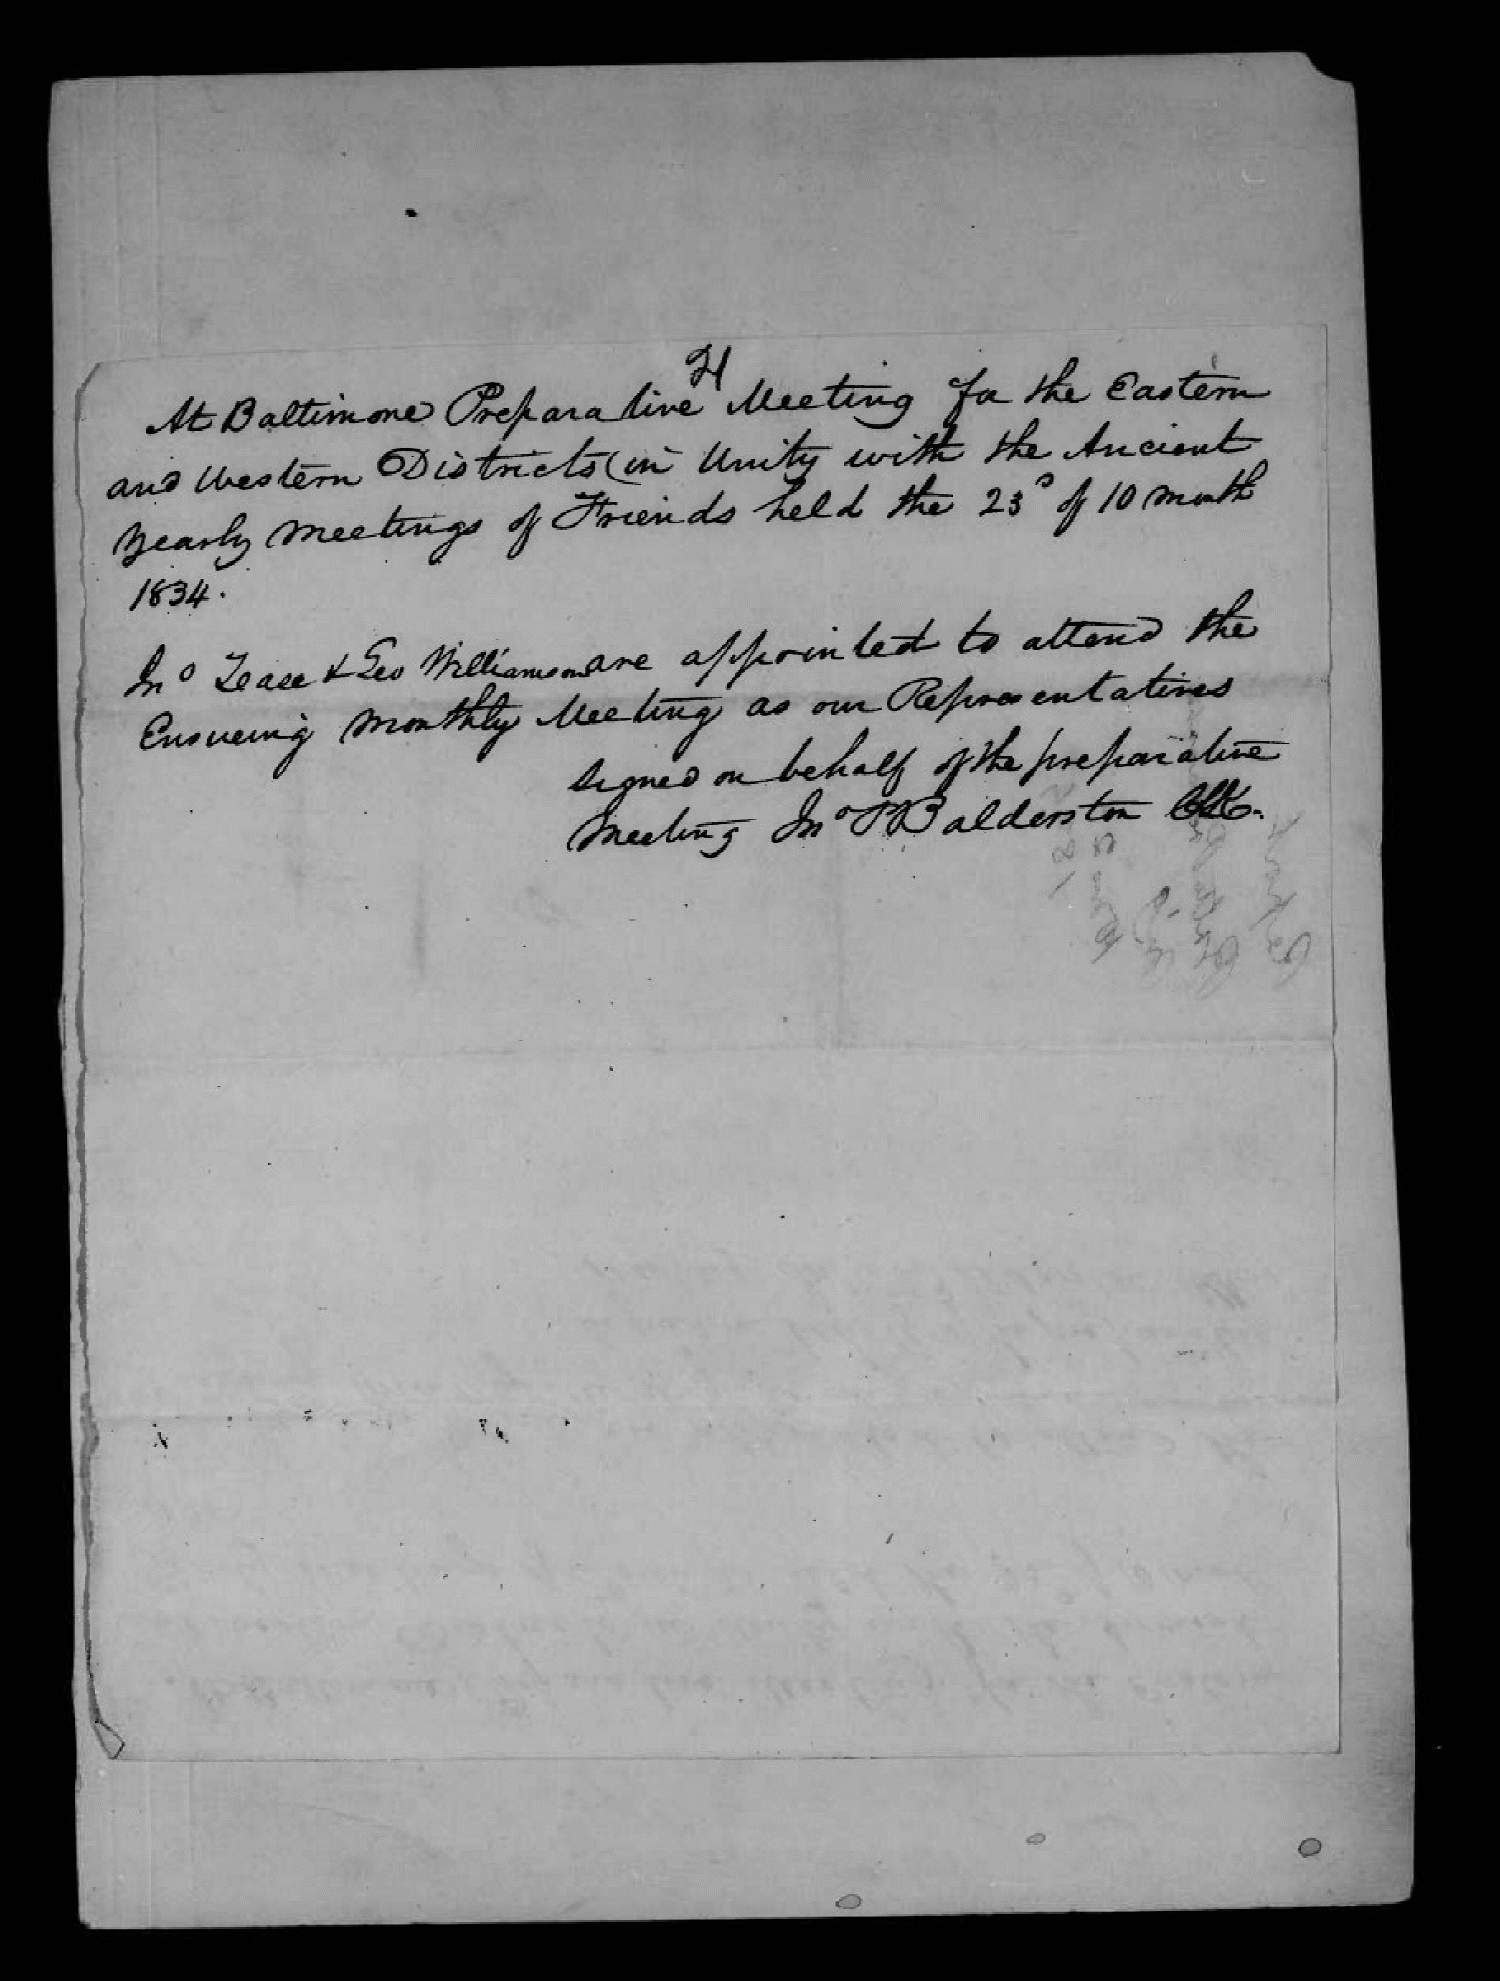 H
At Baltimore Preparative Meeting for the Eastern
and Western Districts (in Unity with the Ancient
Yearly Meetings of Friends held the 23d of 10 month
1834.
Jno Lease & Geo Williamson are appointed to attend the
Ensueing Monthly Meeting as our Representatives
Signed on behalf of the preparative
Meeting Jno P Balderston Clk.